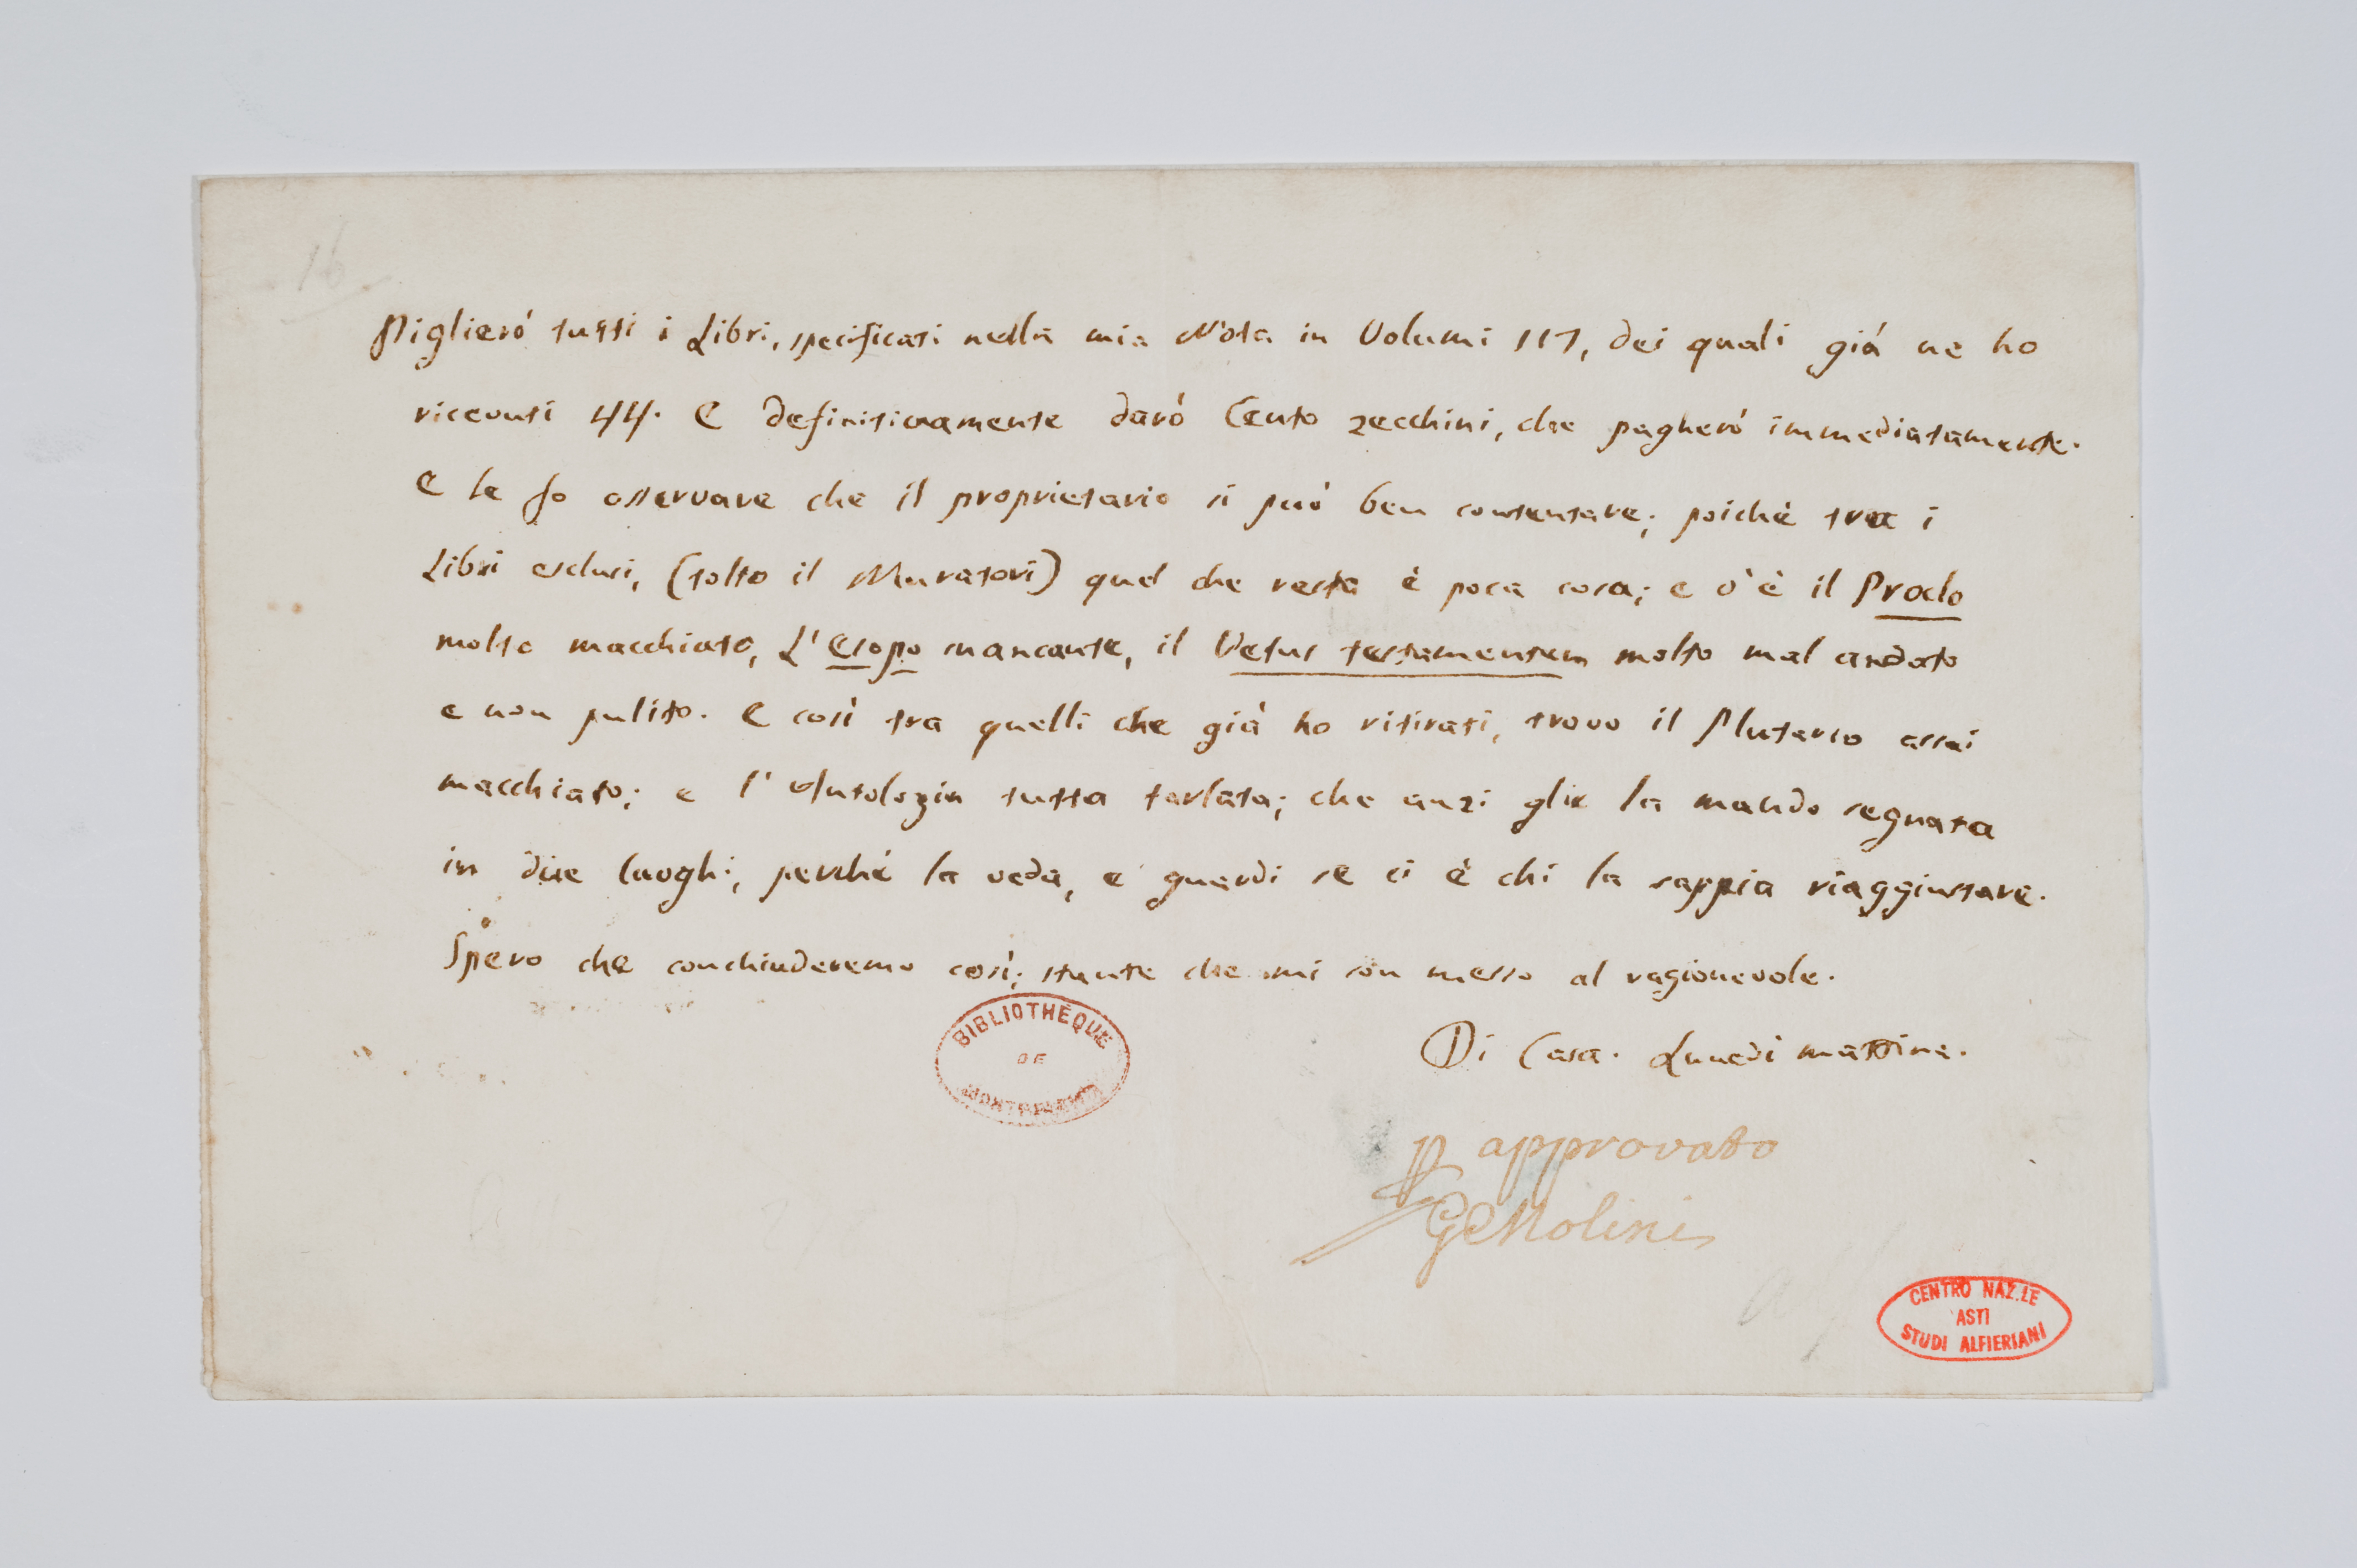 16
Piglierò tutti i Libri, specificati nella mia Nota in Volumi 117, dei quali già ne ho
ricevuti 44. E definitivamente darò Cento zecchini, che pagherò immediatamente.
E le fo osservare che il proprietario si può ben contentare; poichè tra i
Libri esclusi, (tolto il Muratori) quel che resta è poca cosa; e v'è il Proclo
molto macchiato, L'Esopo mancante, il Vetus testamentum molto mal andato
e non pulito. E così tra quelli che già ho ritirati, trovo il Plutarco assai
macchiato; e l'Antologia tutta tarlata; che anzi glie la mando segnata
in due luoghi, perchè la veda, e guardi se ci è chi la sappia riaggiustare.
Spero che conchiuderemo così; stante che mi son messo al ragionevole.
Di Casa. Lunedì mattina.
BIBLIOTHÈQUE
DE
p approvato
G Molini
CENTRO NAZ.LE
ASTI
STUDI ALFIERIANI